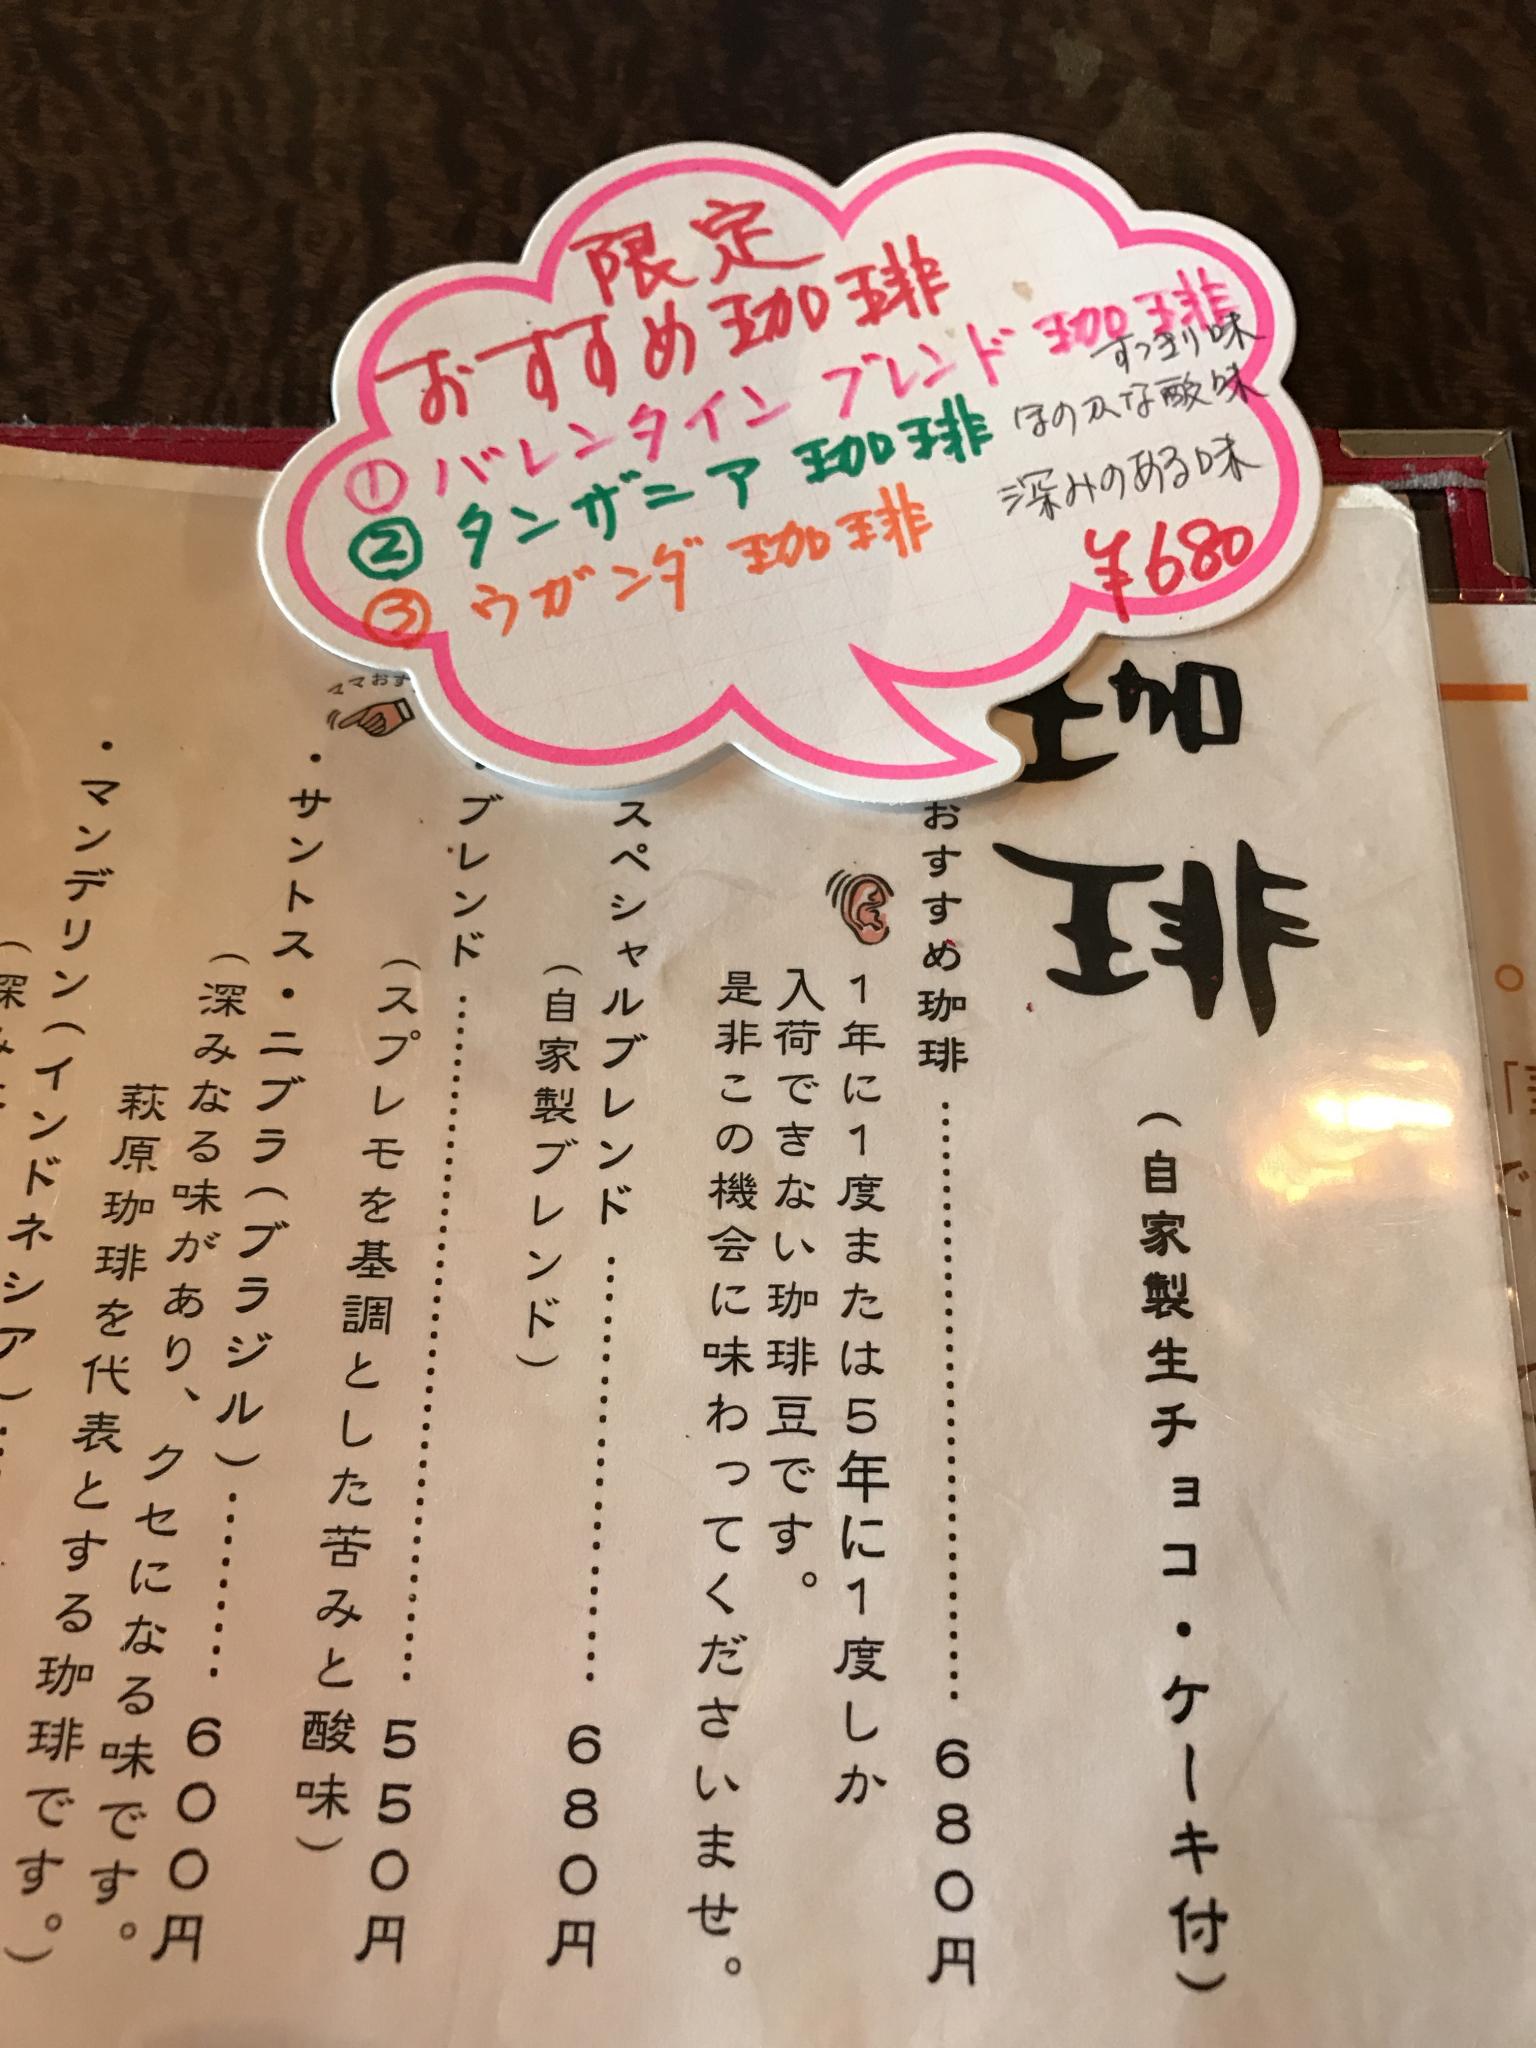 限定
おすすめ珈琲
① バレンタイン ブレンド 珈琲 すっきり味
② タンザニア 珈琲 ほのかな酸味
③ ウガンダ 珈琲 深みのある味
¥680
珈琲
(自家製生チョコ・ケーキ付)
おすすめ珈琲 …… 680円
1年に1度または5年に1度しか
入荷できない珈琲豆です。
是非この機会に味わってくださいませ。
スペシャルブレンド …… 680円
(自家製ブレンド)
・ブレンド …… 550円
(スプレモを基調とした苦みと酸味)
ママおす
・サントス・ニブラ(ブラジル) …… 600円
(深みなる味があり、クセになる味です。
萩原珈琲を代表とする珈琲です。)
・マンデリン(インドネシア) ……